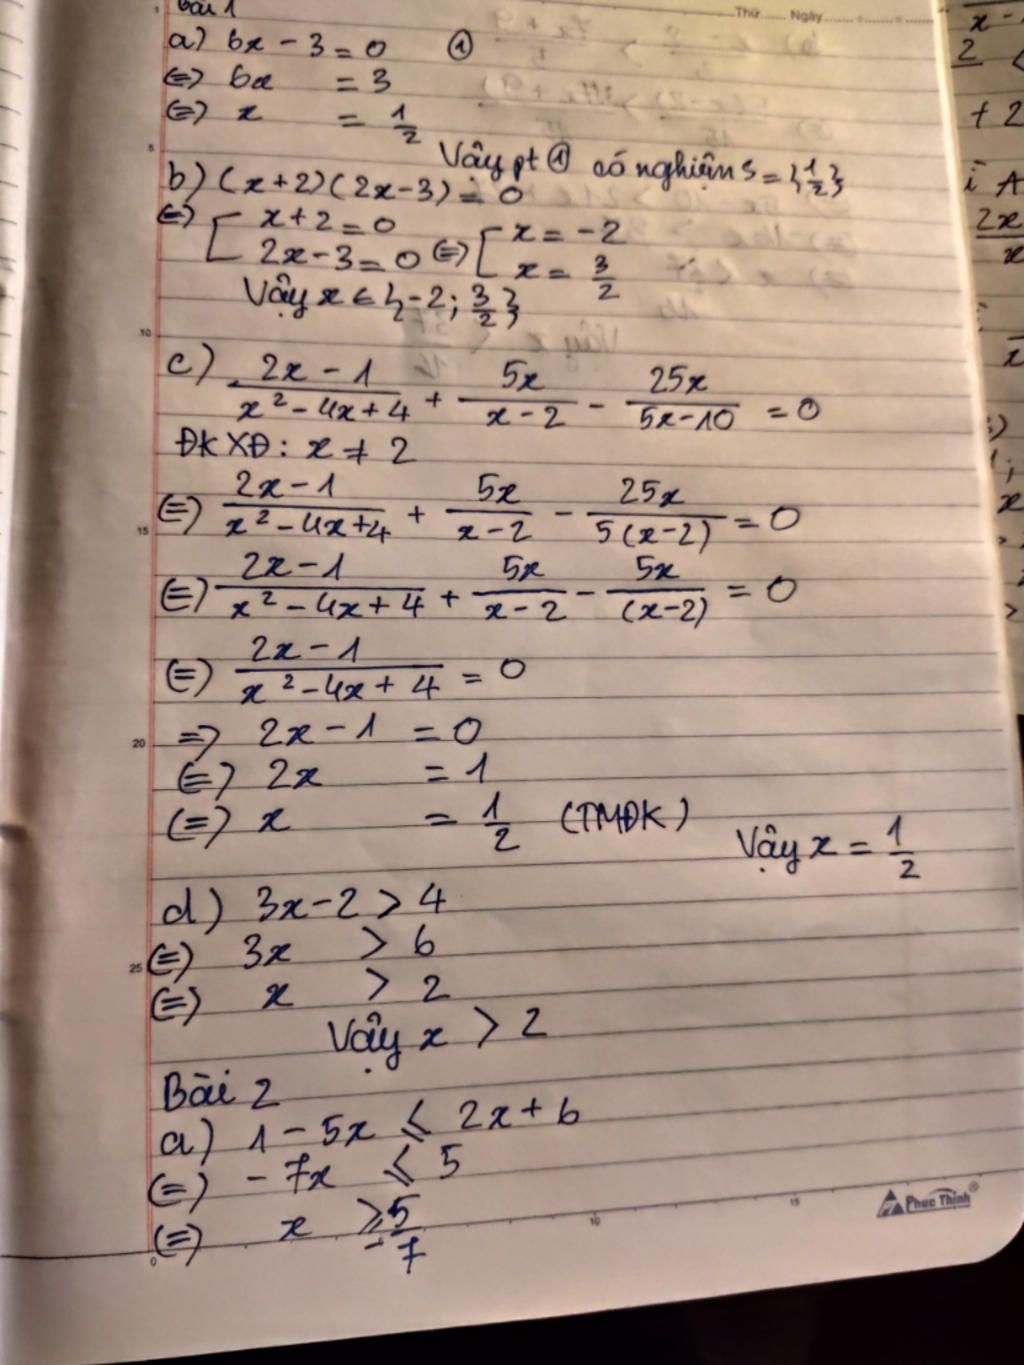 Bài 1
Thứ....... Ngày...............
a) 6x - 3 = 0 ①
(=) 6x = 3
(=) x = 1/2
Vậy pt ① có nghiệm S = {1/2}
b) (x+2)(2x-3) = 0
(=) [ x+2 = 0
2x-3 = 0 (=) [ x = -2
x = 3/2
Vậy x ∈ {-2; 3/2}
c) (2x - 1)/(x² - 4x + 4) + 5x/(x - 2) - 25x/(5x-10) = 0
ĐKXĐ: x ≠ 2
(=) (2x - 1)/(x² - 4x + 4) + 5x/(x - 2) - 25x/(5(x-2)) = 0
(=) (2x - 1)/(x² - 4x + 4) + 5x/(x - 2) - 5x/((x-2)) = 0
(=) (2x - 1)/(x² - 4x + 4) = 0
=> 2x - 1 = 0
(=) 2x = 1
(=) x = 1/2 (TMĐK)
Vậy x = 1/2
d) 3x - 2 > 4
(=) 3x > 6
(=) x > 2
Vậy x > 2
Bài 2
a) 1 - 5x ≤ 2x + 6
(=) -7x ≤ 5
(=) x ≥ -5/7
Phuc Thinh